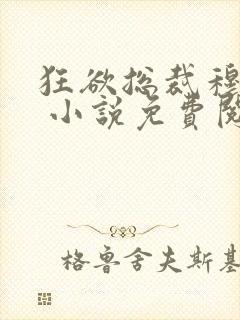 狂欲总裁穆
小說免費閱
格鲁舍夫斯基